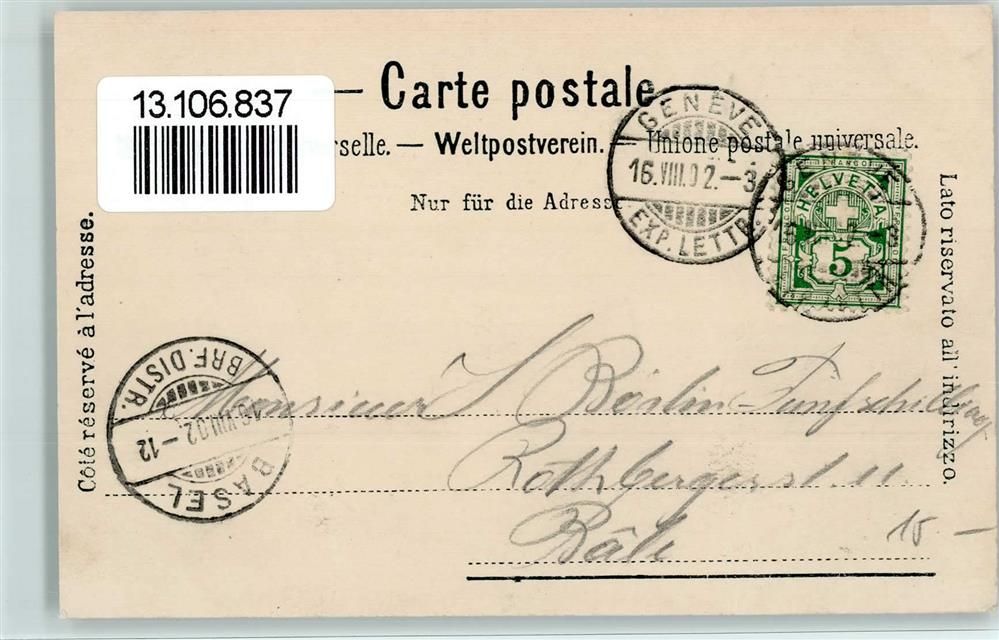 13.106.837
Carte postale
rselle. — Weltpostverein. — Unione postale universale.
Nur für die Adresse
GENÈVE
16.VIII.02.–3
EXP. LETTR.
FRANCO
HELVETIA
5
Côté réservé à l'adresse.
Lato riservato all' indirizzo.
BRF. DISTR.
16.VIII.02.–12
BASEL
Monsieur S. Börlin-Fünfschilling
Rothbergerst. 11
Bâle
15 —